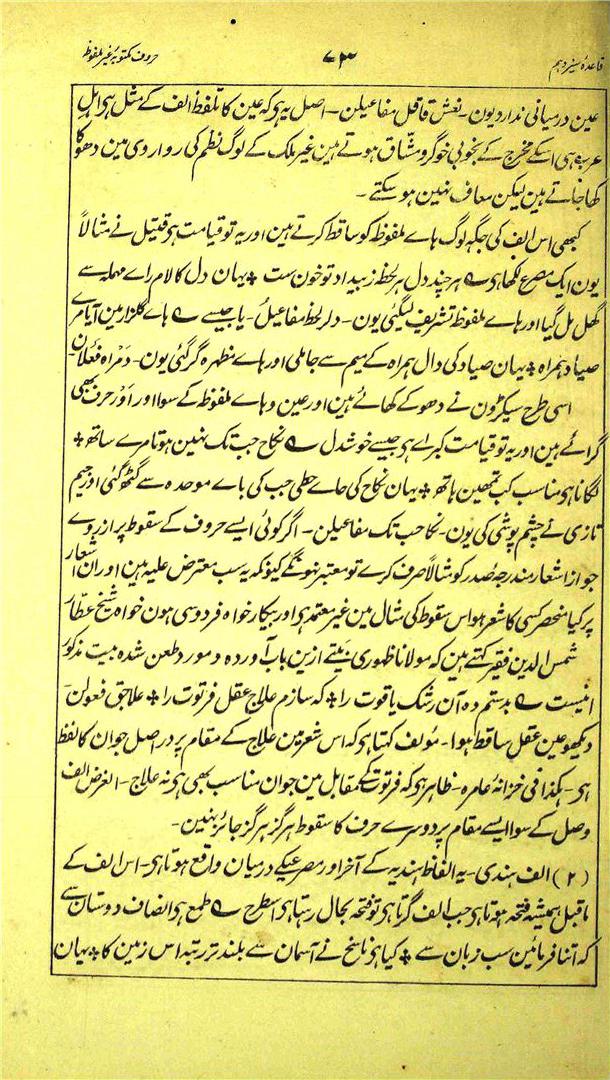 قاعدۂ سیزدہم ۷۳ حروف مکتوبۂ غیر ملفوظ
عین درمیانی ندارد یون۔ نعش قاقل مفاعیلن۔ اصل یہ ہی کہ عین کا تلفظ الف کے مثل ہی اہل
عرب ہی اسکے مخرج کے بخوبی خوگر و مشاق ہوتے ہین غیر ملک کے لوگ نظم کی روا روی مین دھوکا
کھا جاتے ہین لیکن معاف نہین ہو سکتے۔
کبھی اس الف کی جگہ لوگ ہاے ملفوظ کو ساقط کرتے ہین اور یہ تو قیامت ہی قتیل نے مثالاً
یون ایک مصرع لکھا ہی ع ہر چند دل ہر لحظہ ز بیداد تو خون ست ٭ یہان دل کا لام راے مہملہ سے
گھل مل گیا اور ہاے ملفوظ تشریف لیگئی یون۔ دلر لحظ مفاعیلُ۔ یا جیسے ع ہاے گلزار مین آیا مرے
صیاد ہمراہ ٭ یہان صیاد کی دال ہمراہ کے میم سے جا ملی اور ہاے مظہرہ گر گئی یون۔ دمراہ فعلان۔
اسی طرح سیکڑون نے دھوکے کھائے ہین اور عین و ہاے ملفوظ کے سوا اور اَوْر حرف بھی
گرائے ہین اور یہ تو قیامت کبراے ہی جیسے خوشدل ع نکاح جب تک نہین ہوتا مرے ساتھ ٭
لگانا ہی مناسب کب تمھین ہاتھ ٭ یہان نکاح کی حاے حطی جب کی باے موحدہ سے گتھ گئی اور جیم
تازی نے چشم پوشی کی یون۔ نکا حب تک مفاعیلن۔ اگر کوئی ایسے حروف کے سقوط پر از روے
جواز اشعار مندرجہ صدر کو مثالاً صرف کرے تو معتبر نہونگے کیونکہ یہ سب معترض علیہ ہین اور ان اشعار
پر کیا منحصر کسی کا شعر ہو اس سقوط کی مثال مین غیر معتمد ہی اور بیکار خواہ فردوسی ہون خواہ شیخ عطار
شمس الدین فقیر کہتے ہین کہ مولانا ظہوری بیتے ازین باب آوردہ و مورد طعن شدہ بیت مذکور
انیست ع بدستم دہ آن رشک یاقوت را ٭ کہ سازم علاج عقل فرتوت را ٭ علاجق فعولن۔
دیکھو عین عقل ساقط ہوا۔ مؤلف کہتا ہی کہ اس شعر مین علاج کے مقام پر در اصل جوان کا لفظ
ہی۔ ہکذا فی خزانۂ عامرہ۔ ظاہر ہی کہ فرتوت کے مقابل مین جوان مناسب بھی ہی نہ علاج۔ الغرض الف
وصل کے سوا ایسے مقام پر دوسرے حرف کا سقوط ہرگز ہرگز جائز نہین۔
(۲) الف ہندی۔ یہ الفاظ ہندیہ کے آخر اور مصرعیکے درمیان واقع ہوتا ہی۔ اس الف کے
ماقبل ہمیشہ فتحہ ہوتا ہی جب الف گرتا ہی تو فتحہ بحال رہتا ہی اسطرح ع طمع ہی انصاف دوستان سے
کہ اتنا فرمائین سب زبان سے ٭ کیا ہی ناسخ نے آسمان سے بلند تر رتبہ اس زمین کا ٭ یہان